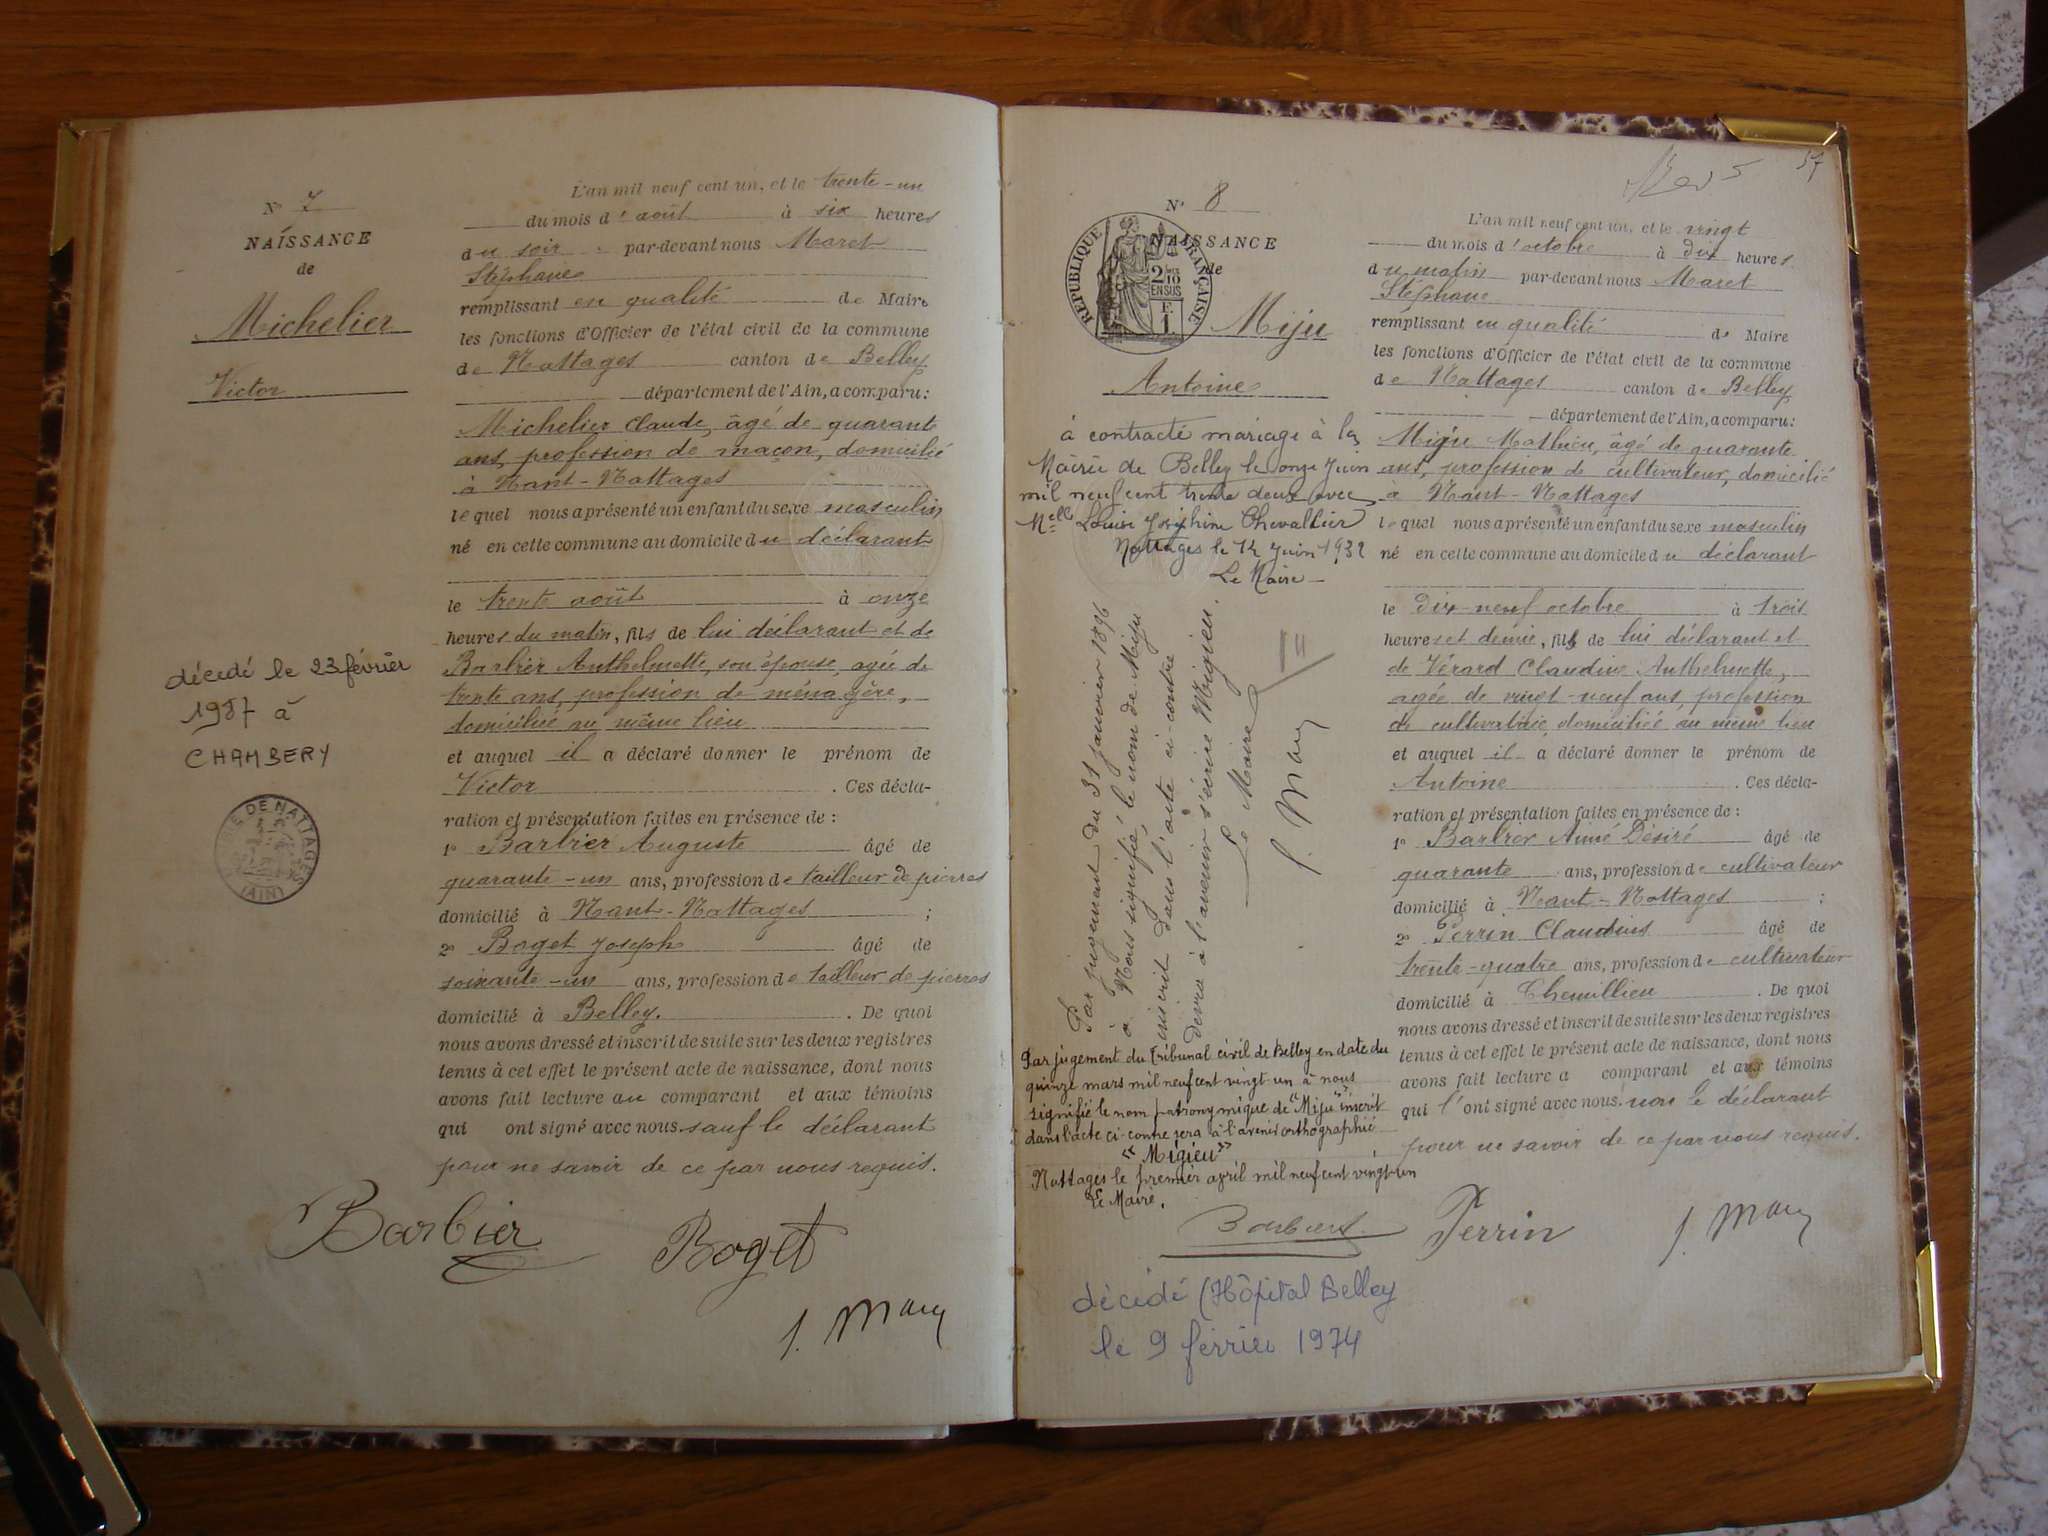 N° 7
NAISSANCE
de
Michelier
Victor
décédé le 23 février
1987 à
CHAMBERY
MAIRIE DE NATTAGES
(AIN)
L'an mil neuf cent un, et le trente-un
du mois d'août à six heures
du soir par-devant nous Maret
Stéphane
remplissant en qualité de Maire
les fonctions d'Officier de l'état civil de la commune
de Nattages canton de Belley
département de l'Ain, a comparu:
Michelier Claude, âgé de quarante
ans, profession de maçon, domicilié
à Nant-Nattages
lequel nous a présenté un enfant du sexe masculin
né en cette commune au domicile du déclarant
le trente août à onze
heures du matin, fils de lui déclarant et de
Barbier Anthelmette, son épouse, agée de
trente ans, profession de ménagère,
domiciliée au même lieu
et auquel il a déclaré donner le prénom de
Victor. Ces décla-
ration et présentation faites en présence de:
1° Barbier Auguste âgé de
quarante-un ans, profession de tailleur de pierres
domicilié à Nant-Nattages;
2° Boget Joseph âgé de
soixante-un ans, profession de tailleur de pierres
domicilié à Belley. De quoi
nous avons dressé et inscrit de suite sur les deux registres
tenus à cet effet le présent acte de naissance, dont nous
avons fait lecture au comparant et aux témoins
qui ont signé avec nous sauf le déclarant
pour ne savoir de ce par nous requis.
Barbier Boget
57
N° 8
RÉPUBLIQUE FRANÇAISE
2/10 EN SUS
F. 1
NAISSANCE
de
Miju
Antoine
à contracté mariage à la
Mairie de Belley le onze Juin
mil neuf cent trente deux avec
Melle Louise Joséphine Chevallier
Nattages le 12 Juin 1932
Le Maire
Par jugement du 31 janvier 1896
à Nous signifié, le nom de Miju
inscrit dans l'acte ci-contre
devra à l'avenir s'écrire Migieu.
Le Maire
Par jugement du Tribunal civil de Belley en date du
quinze mars mil neuf cent vingt un à nous
signifié le nom patronymique de "Miju" inscrit
dans l'acte ci-contre sera à l'avenir orthographié
"Migieu"
Nattages le premier avril mil neuf cent vingt un
Le Maire.
L'an mil neuf cent un, et le vingt
du mois d'octobre à dix heures
du matin par-devant nous Maret
Stéphane
remplissant en qualité de Maire
les fonctions d'Officier de l'état civil de la commune
de Nattages canton de Belley
département de l'Ain, a comparu:
Migieu Mathieu, âgé de quarante
ans, profession de cultivateur, domicilié
à Nant-Nattages
lequel nous a présenté un enfant du sexe masculin
né en cette commune au domicile du déclarant
le dix-neuf octobre à trois
heures et demie, fils de lui déclarant et
de Vérard Claudine Anthelmette,
agée de vingt-neuf ans, profession
de cultivatrice, domiciliée au même lieu
et auquel il a déclaré donner le prénom de
Antoine. Ces décla-
ration et présentation faites en présence de:
1° Barbier Aimé Désiré âgé de
quarante ans, profession de cultivateur
domicilié à Nant-Nattages;
2° Perrin Claudius âgé de
trente-quatre ans, profession de cultivateur
domicilié à Chemillieu. De quoi
nous avons dressé et inscrit de suite sur les deux registres
tenus à cet effet le présent acte de naissance, dont nous
avons fait lecture a comparant et aux témoins
qui l'ont signé avec nous. non le déclarant
pour ne savoir de ce par nous requis.
Perrin
décédé (Hôpital Belley
le 9 février 1974